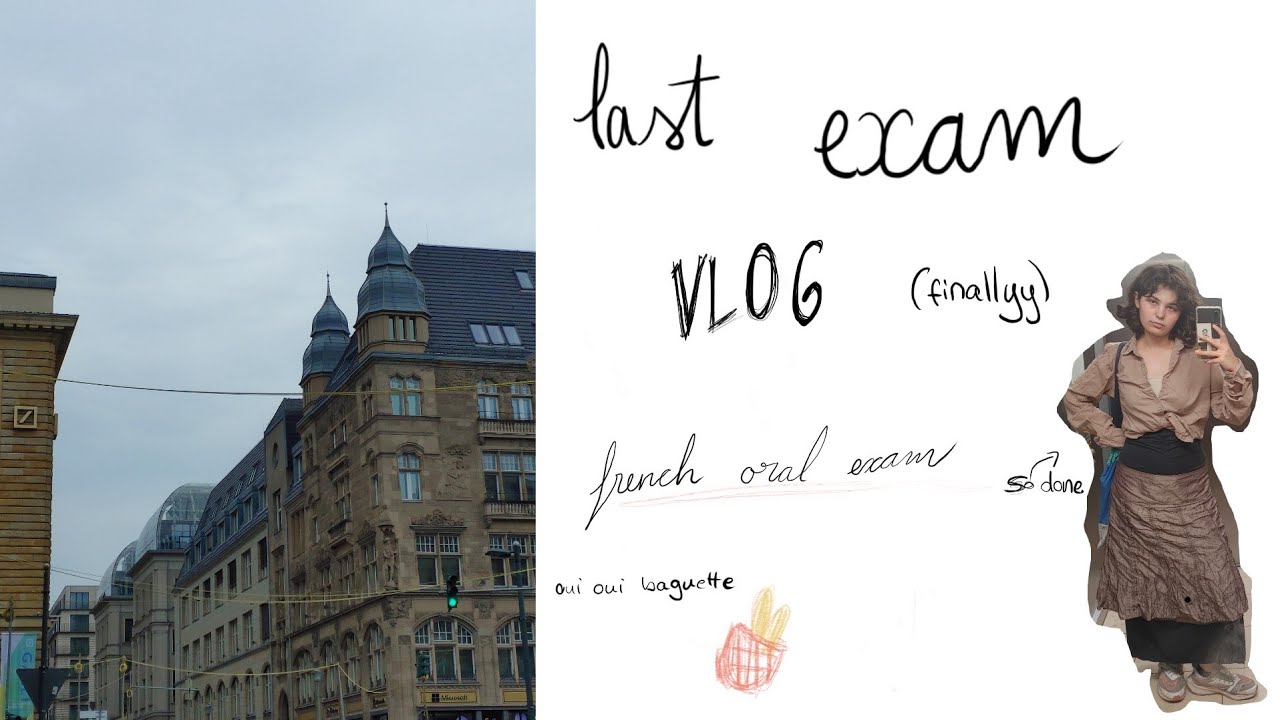 last exam
VLOG (finallyy)
french oral exam
so done
oui oui baguette
Microsoft